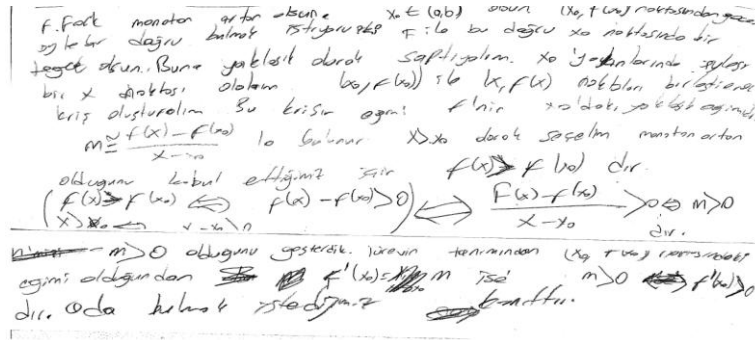 F. Fonk monoton artan olsun. x₀ ∈ (a,b) olsun (x₀, f(x₀)) noktasından geçen
öyle bir doğru bulmak istiyoruz ki F ile bu doğru x₀ noktasında bir
teğet olsun. Bunu yaklaşık olarak saptıyalım. x₀'ın yakınlarında
bir x noktası alalım (x₀, f(x₀)) ile (x, f(x)) noktaları birleştiren
kiriş oluşturalım Bu kirişin eğimi f'nin x₀'daki yaklaşık eğimidir
m ≅ f(x) - f(x₀) / x - x₀ bulunur x>x₀ olarak seçelim monoton artan
olduğunu kabul ettiğimiz için f(x) > f(x₀) dır.
( f(x) > f(x₀) ⟺ f(x) - f(x₀) > 0 ) ⟺ F(x) - f(x₀) / x - x₀ > 0 ⟺ m > 0
x > x₀ ⟺ x - x₀ > 0 dır.
m > 0 olduğunu gösterdik. türevin tanımından (x₀, f(x₀)) noktasındaki
eğimi olduğundan f'(x₀) = m ise m > 0 f'(x₀) > 0
dır. O da bulmak istediğimiz